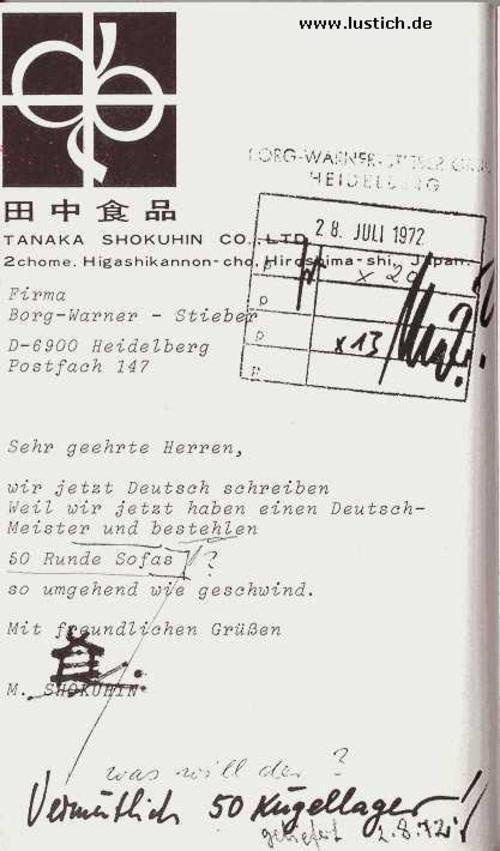 www.lustich.de
BORG-WARNER-STIEBER
HEIDELBERG
田中食品
28. JULI 1972
TANAKA SHOKUHIN CO., LTD.
2chome, Higashikannon-cho, Hiroshima-shi, Japan.
x 20
p
p
x 13
p
p
Firma
Borg-Warner - Stieber
D-6900 Heidelberg
Postfach 147
Sehr geehrte Herren,
wir jetzt Deutsch schreiben
Weil wir jetzt haben einen Deutsch-
Meister und bestehlen
50 Runde Sofas ?
so umgehend wie geschwind.
Mit freundlichen Grüßen
M. SHOKUHIN
was will der ?
Vermutlich 50 Kugellager!
geliefert 2.8.72